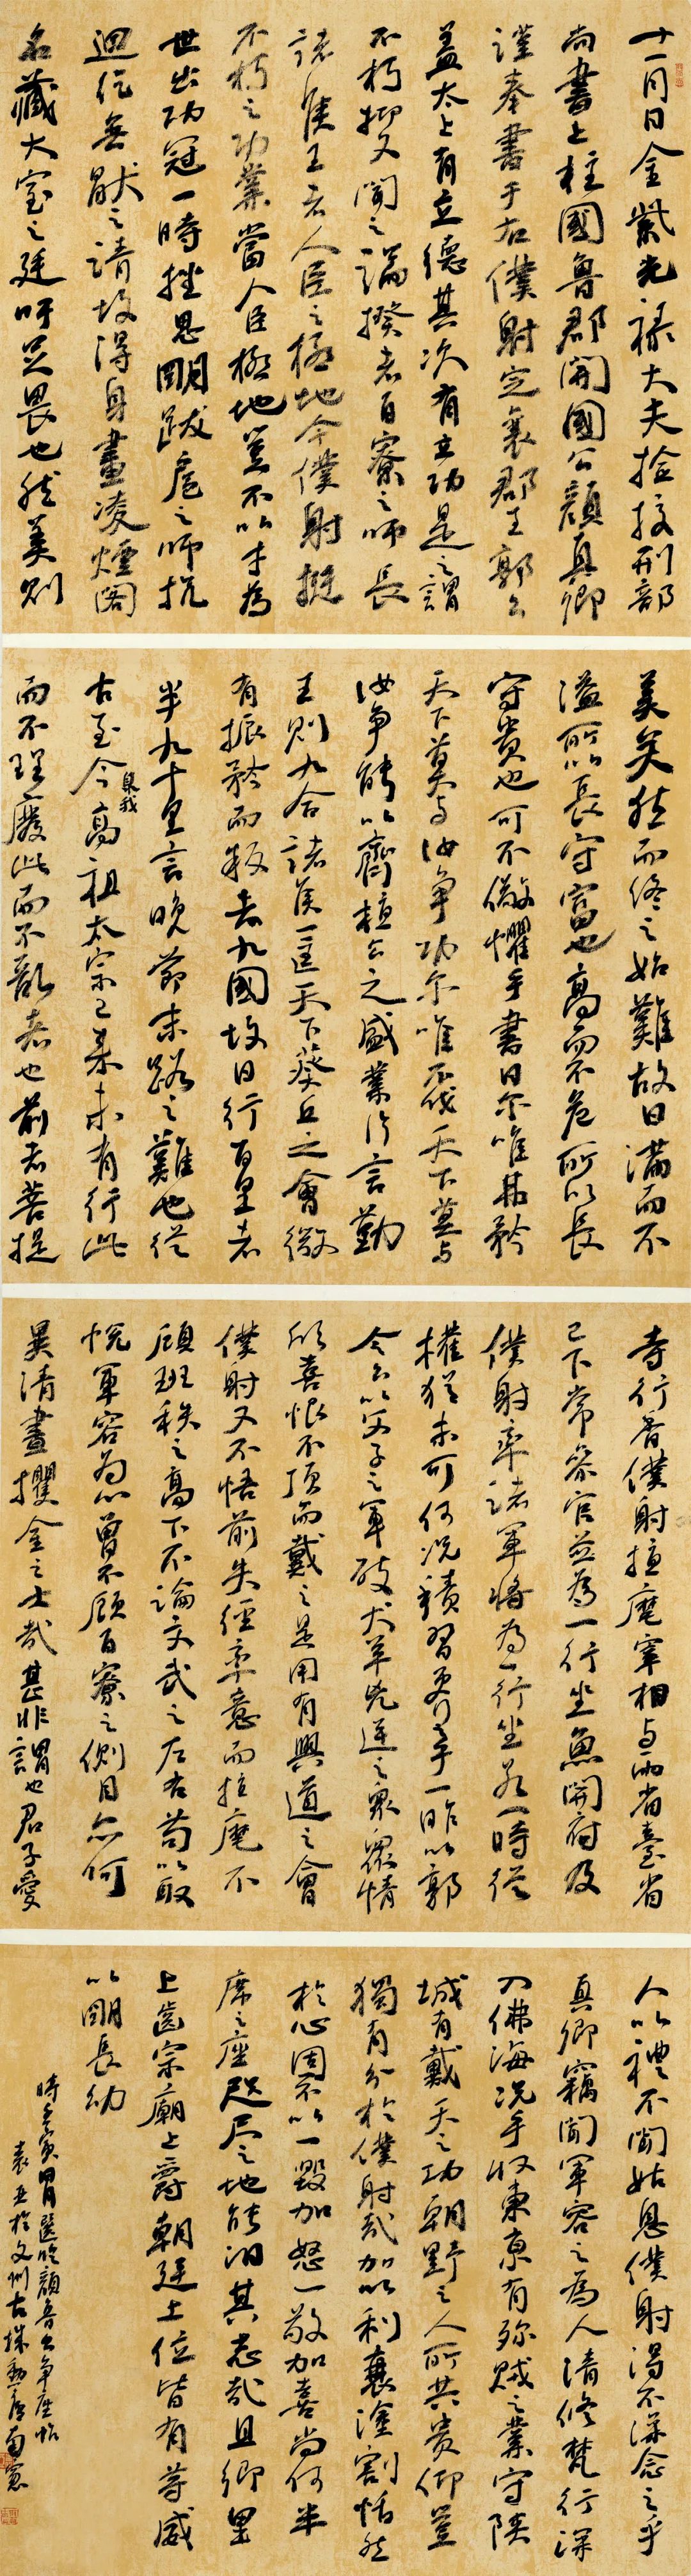 十一月日金紫光祿大夫撿挍刑部
尚書上柱國魯郡開國公顏真卿
謹奉書于右僕射定襄郡王郭公
蓋太上有立德其次有立功是之謂
不朽抑又聞之端揆者百寮之師長
諸侯王者人臣之極地今僕射挺
不朽之功業當人臣極地豈不以才為
世出功冠一時挫思明跋扈之師抗
迴紇無猒之請故得身畫淩煙閣
名藏太室之廷吁足畏也然美則
美矣然而終之始難故曰滿而不
溢所以長守富也高而不危所以長
守貴也可不儆懼乎書曰尔唯弗矜
天下莫与汝爭功尔唯不伐天下莫与
汝爭能以齊桓公之盛業片言勤
王則九合諸侯一匡天下葵丘之會微
有振矜而叛者九國故曰行百里者
半九十里言晚節末路之難也從
古至今泉我高祖太宗已來未有行此
而不理廢此而不亂者也前者菩提
寺行香僕射指麾宰相与兩省臺省
已下常參官並為一行坐魚開府及
僕射率諸軍將為一行坐若一時從
權猶未可何況積習更行之乎一昨以郭
令公以父子之軍破犬羊兇逆之眾眾情
欣喜恨不頂而戴之是用有興道之會
僕射又不悟前失徑率意而指麾不
顧班秩之高下不論文武之左右苟以取
悅軍容為心曾不顧百寮之側目亦何
異清晝攫金之士哉甚非謂也君子愛
人以禮不聞姑息僕射得不深念之乎
真卿竊聞軍容之為人清修梵行深
入佛海況乎收東京有殄賊之業守陝
城有戴天之功朝野之人所共貴仰豈
獨有分於僕射哉加以利衰塗割恬然
於心固不以一毀加怒一敬加喜尚何半
席之座咫尺之地能汩其志哉且鄉里
上齒宗廟上爵朝廷上位皆有等威
以明長幼
時壬寅胃匡臨顏魯公爭座帖
袁丑於文州古